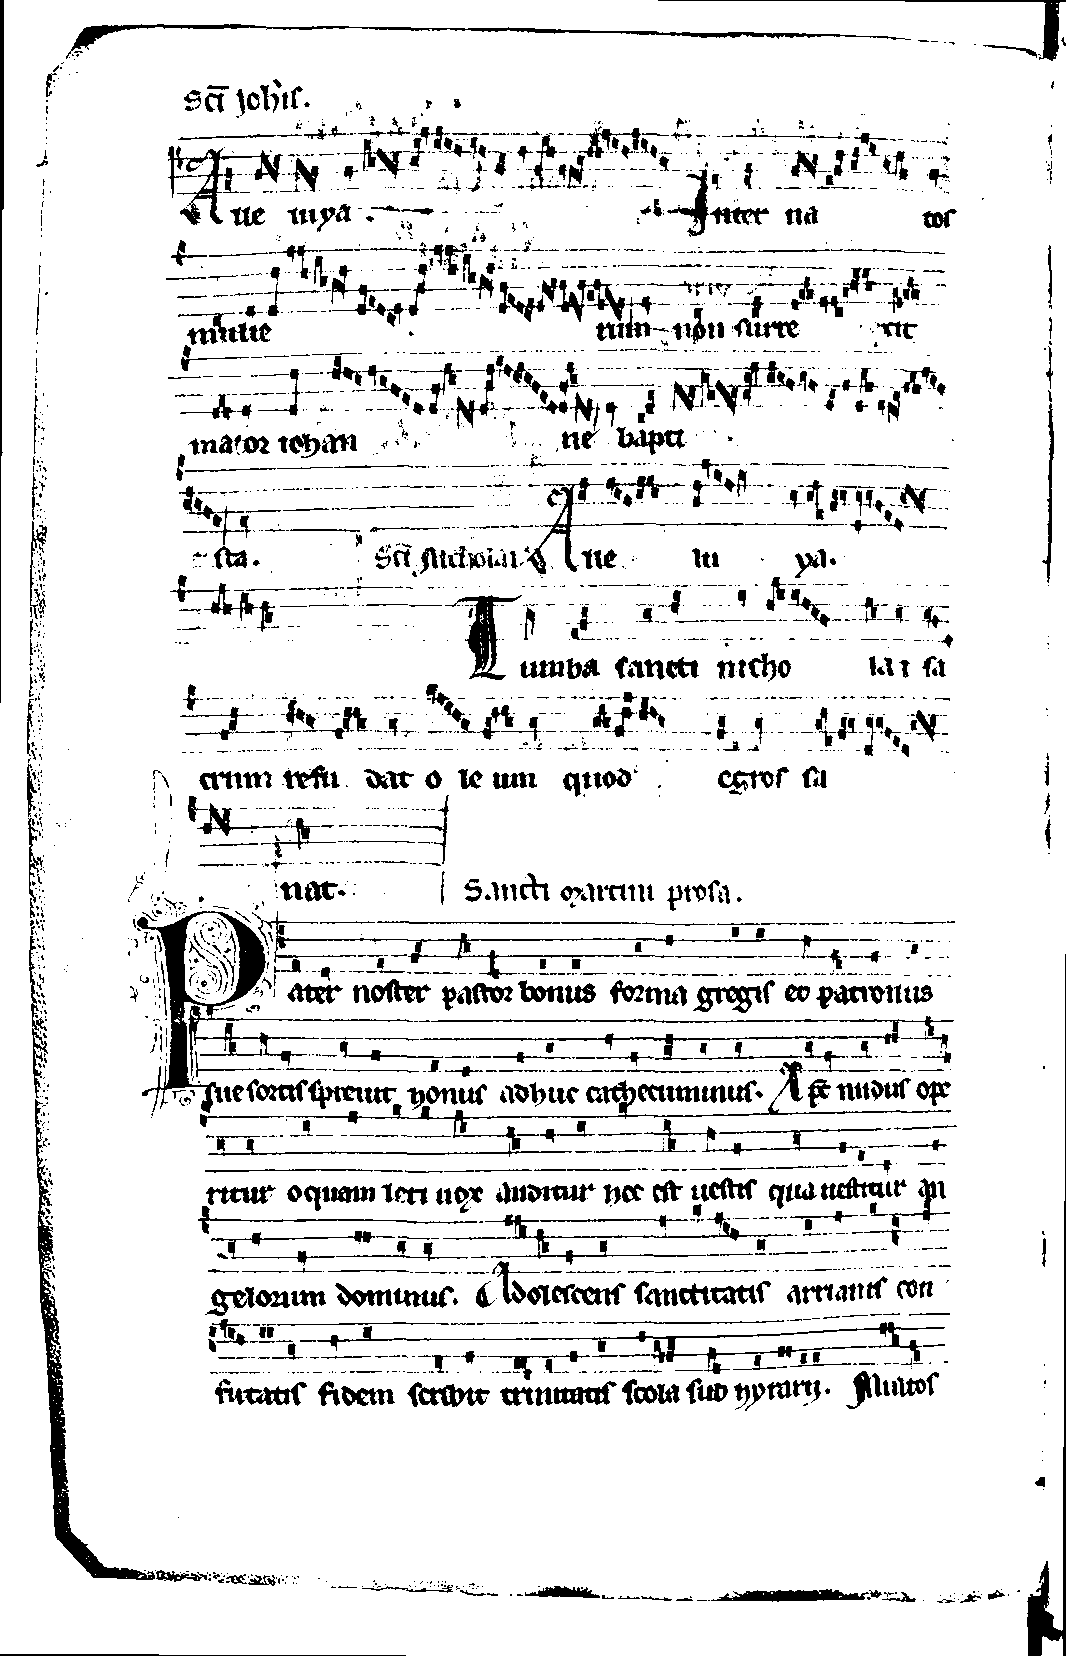 Sci Johis.
Alle luya. Inter na tos
mulie rum non surre xit
maior iohan ne bapti
sta. Sci Nicholai Alle lu ya.
Tumba sancti nicho lai sa
crum resu dat o le um quod egros sa
nat. Sancti martini prosa.
Pater noster pastor bonus forma gregis et patronus
sue sortis spreuit honus adhuc cathecuminus. A pe nudus ope
ritur o quam leti uox auditur hec est uestis qua uestitur an
gelorum dominus. Adolescens sanctitatis arrianis con
futatis fidem scribit trinitatis scola sub hyrarii. Multos